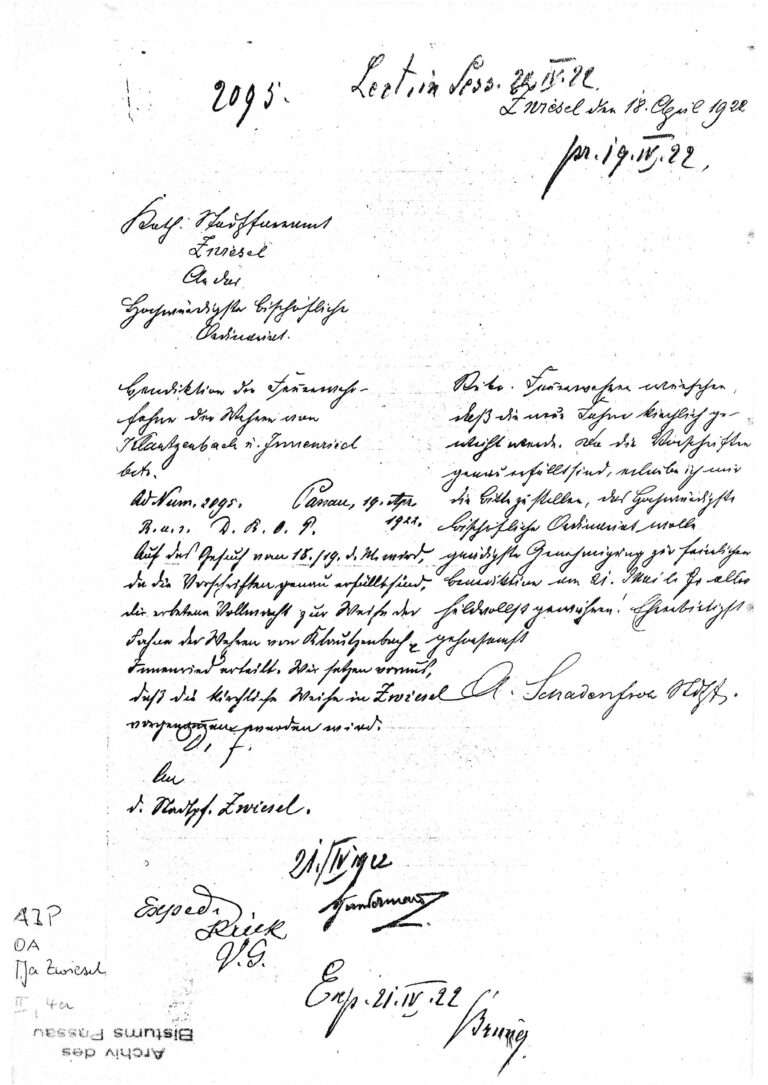 2095.
Lect. in Sess. 21.IV.22.
Zwiesel den 18. April 1922
pr. 19.IV.22.
Kath. Stadtpfarramt
Zwiesel
An das
Hochwürdigste bischöfliche
Ordinariat.
Benediktion der Feuerwehr-
fahne der Wehren von
Klautzenbach u. Innenried
betr.
Feuerwehren wünschen,
daß die neue Fahne kirchlich ge-
weiht werde. Da die Vorschriften
genau erfüllt sind, erlaube ich mir
die Bitte zu stellen, das Hochwürdigste
bischöfliche Ordinariat wolle
gnädigste Genehmigung zur feierlichen
Benediktion am 21. Mai l. Js.
huldvollst gewähren! Ehrerbietigst
gehorsamst
A. Schadenfroh Stdtpf.
Ad Num. 2095. Passau, 19. Apr.
1922.
Auf das Gesuch vom 18./19. d. M. wird,
da die Vorschriften genau erfüllt sind,
die erbetene Vollmacht zur Weihe der
Fahne der Wehren von Klautzenbach &
Innenried erteilt. Wir setzen voraus,
daß die kirchliche Weihe in Zwiesel
vorgenommen werden wird.
An
d. Stadtpf. Zwiesel.
21./IV 1922
Exped.
Riek
V.G.
Exp. 21.IV.22
ABP
OA
Pfa Zwiesel
II, 4a
Archiv des
Bistums Passau